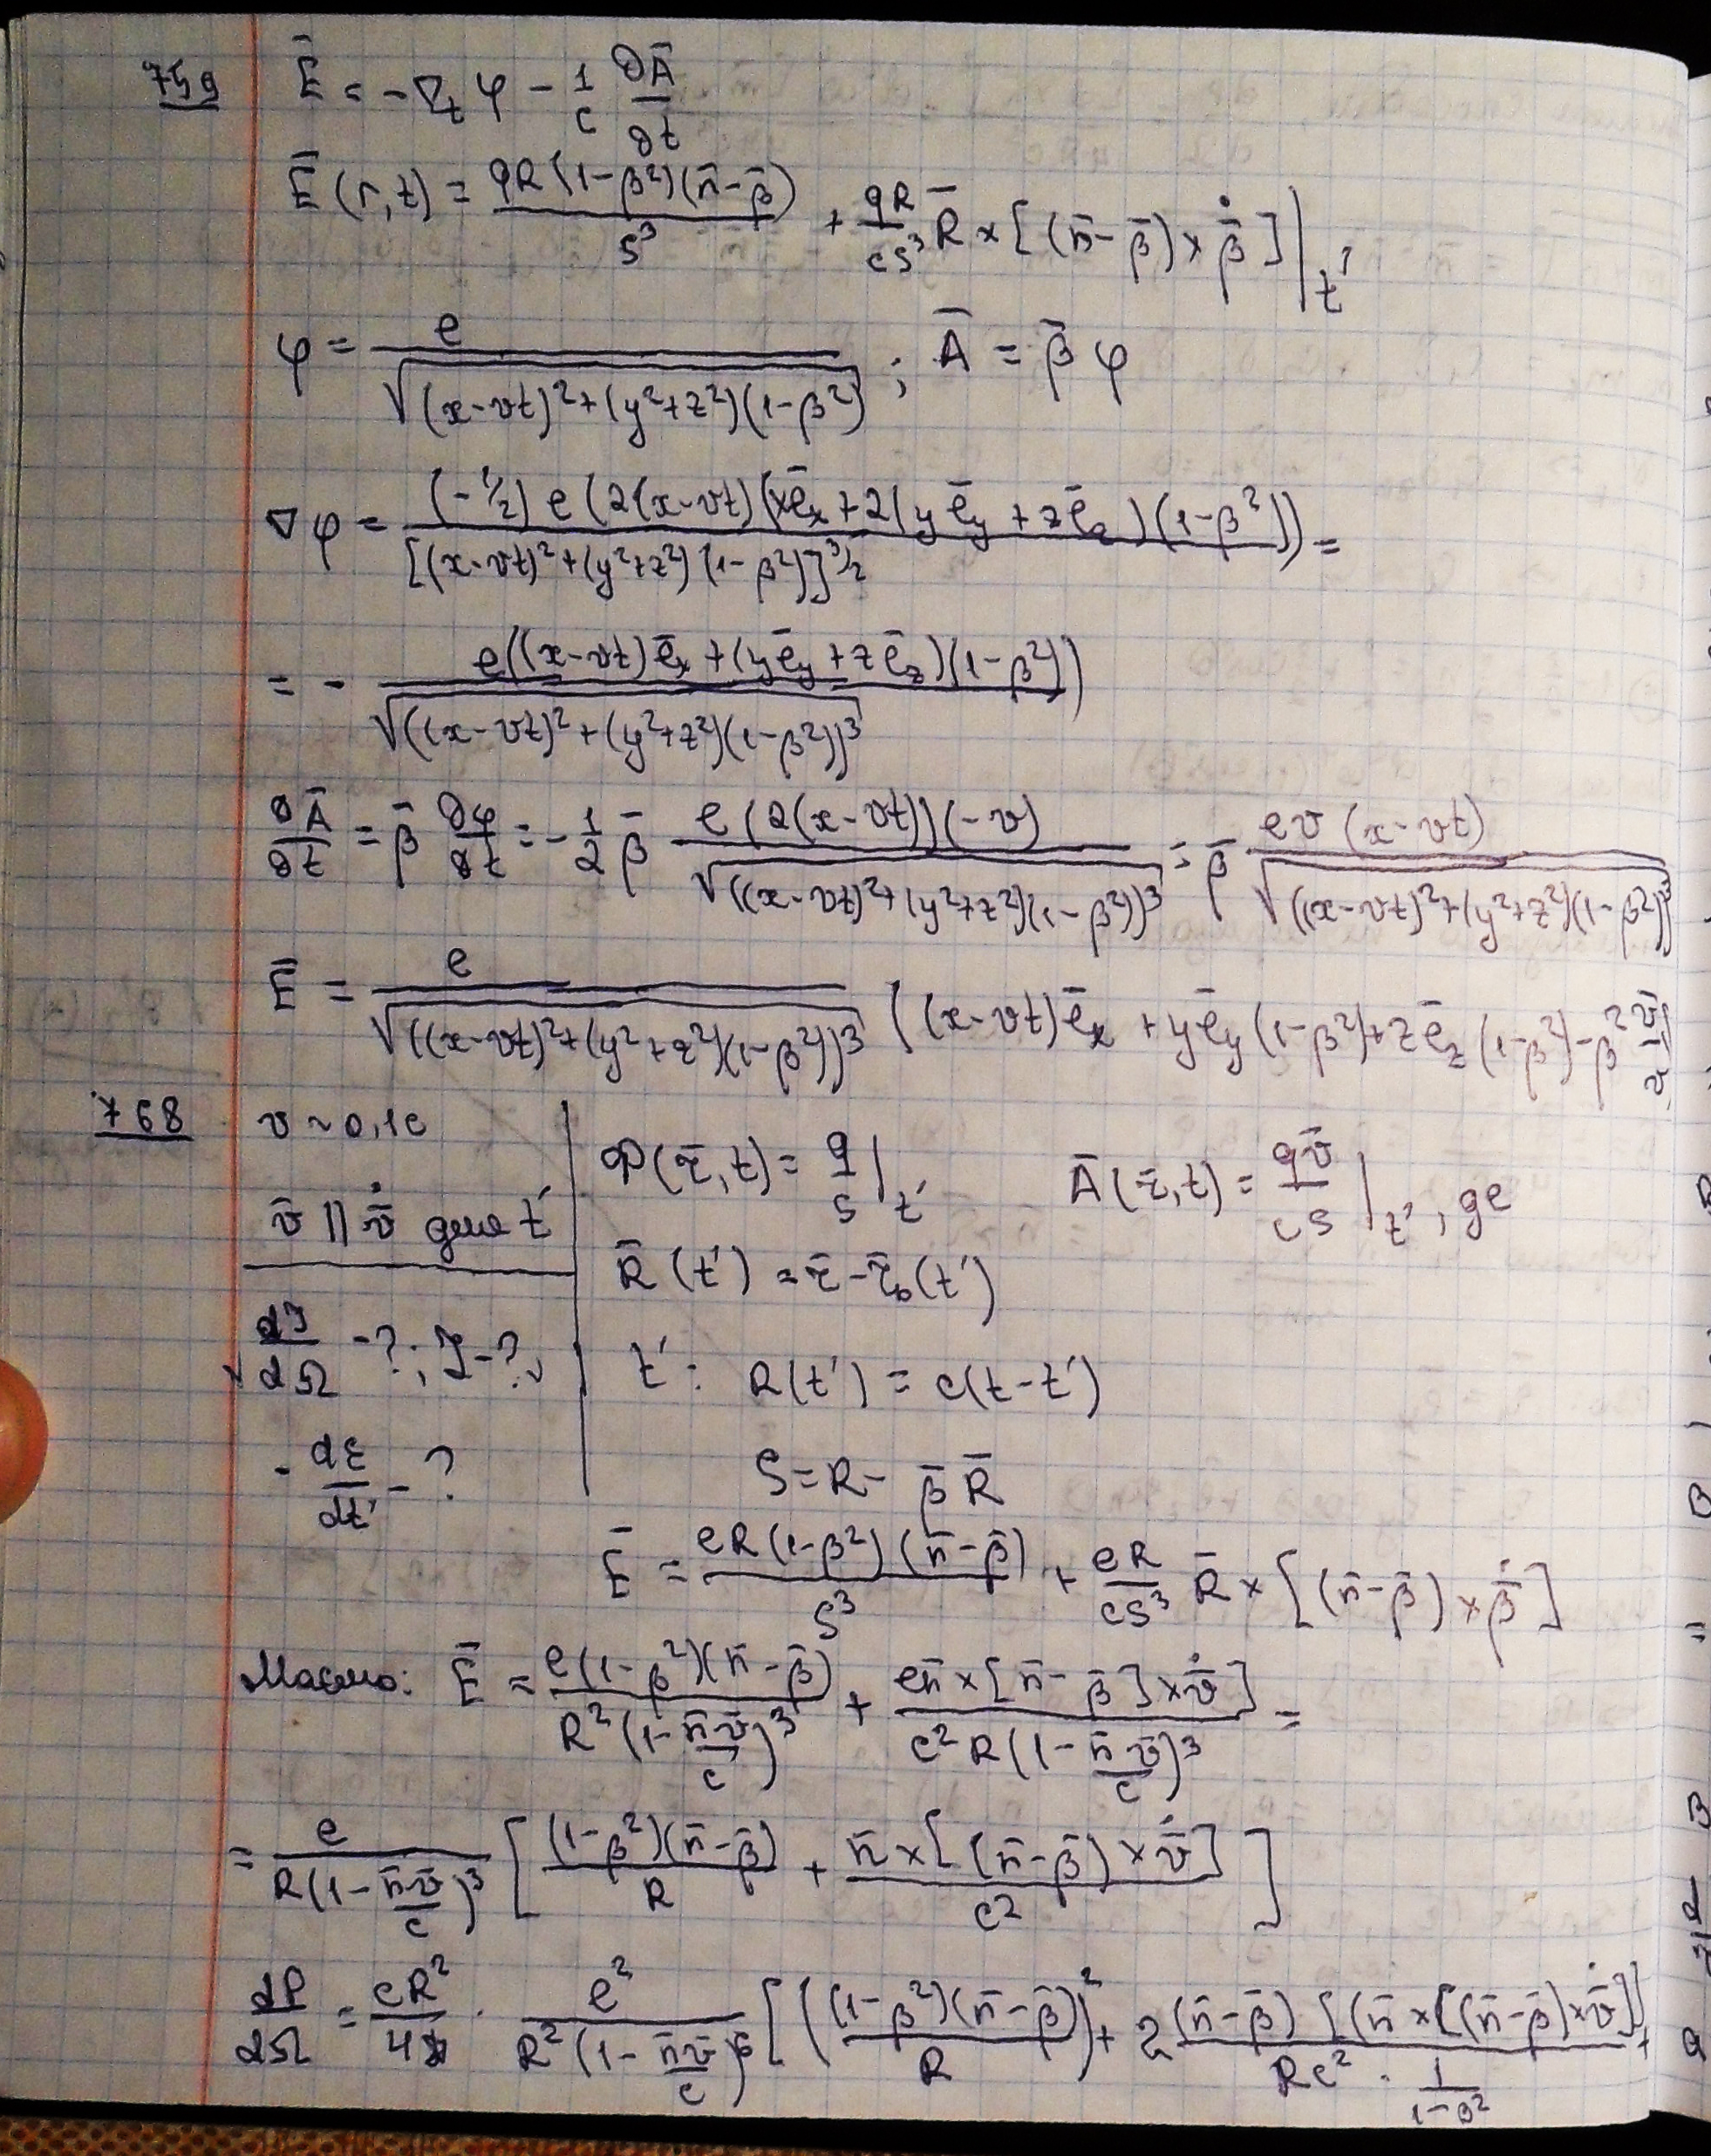 759 Ē = -∇_t φ - 1/c ∂Ā/∂t
Ē(r,t) = qR(1-β²)(n̄-β̄)/S³ + qR/cS³ R̄×[(n̄-β̄)×β̄̇]|_t'
φ = e/√((x-vt)²+(y²+z²)(1-β²)) ; Ā = β̄φ
∇φ = (-1/2)e(2(x-vt)(xē_x+2(yē_y+zē_z)(1-β²))/[(x-vt)²+(y²+z²)(1-β²)]^3/2 =
= - e((x-vt)ē_x+(yē_y+zē_z)(1-β²))/√((x-vt)²+(y²+z²)(1-β²))³
∂Ā/∂t = β̄ ∂φ/∂t = -1/2 β̄ e(2(x-vt))(-v)/√((x-vt)²+(y²+z²)(1-β²))³ = β̄ ev(x-vt)/√((x-vt)²+(y²+z²)(1-β²))³
Ē = e/√((x-vt)²+(y²+z²)(1-β²))³ ((x-vt)ē_x+yē_y(1-β²)+zē_z(1-β²)-β² v̄/v)
768 v ~ 0,1c
v̄ || v̄̇ для t'
dI/dΩ -? ; I -?
-dε/dt' - ?
φ(r̄,t) = q/S|_t' Ā(r̄,t) = qv̄/cS|_t' , де
R̄(t') = r̄-r̄₀(t')
t': R(t') = c(t-t')
S = R - β̄R̄
Ē = eR(1-β²)(n̄-β̄)/S³ + eR/cS³ R̄×[(n̄-β̄)×β̄̇]
Маємо: Ē = e(1-β²)(n̄-β̄)/R²(1-n̄v̄/c)³ + en̄×[n̄-β̄]×v̄̇]/c²R(1-n̄v̄/c)³ =
= e/R(1-n̄v̄/c)³ [(1-β²)(n̄-β̄)/R + n̄×[(n̄-β̄)×v̄̇]/c²]
dP/dΩ = cR²/4π · e²/R²(1-n̄v̄/c)⁶ [((1-β²)(n̄-β̄)/R)² + 2(n̄-β̄)[(n̄×[(n̄-β̄)×v̄̇]]/Rc² · 1/1-β² +